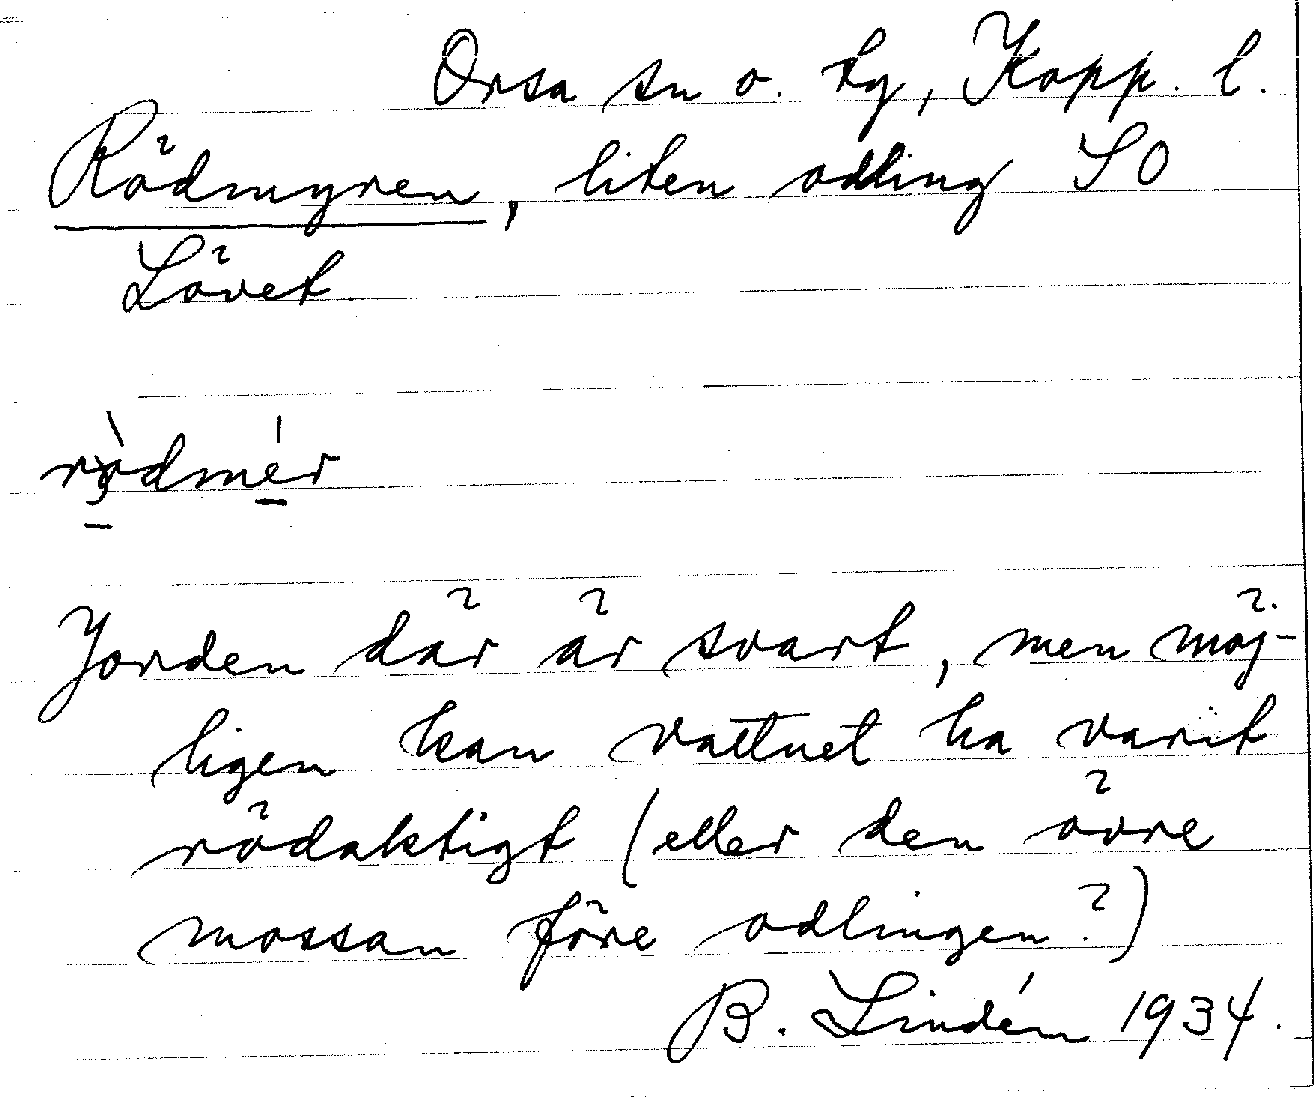 Orsa sn o. tg, Kopp. l.
Rödmyren, liten odling SO
Lövet
rödmér
Jorden där är svart, men möj-
ligen kan vattnet ha varit
rödaktigt (eller den övre
mossan före odlingen?)
B. Lindén 1934.